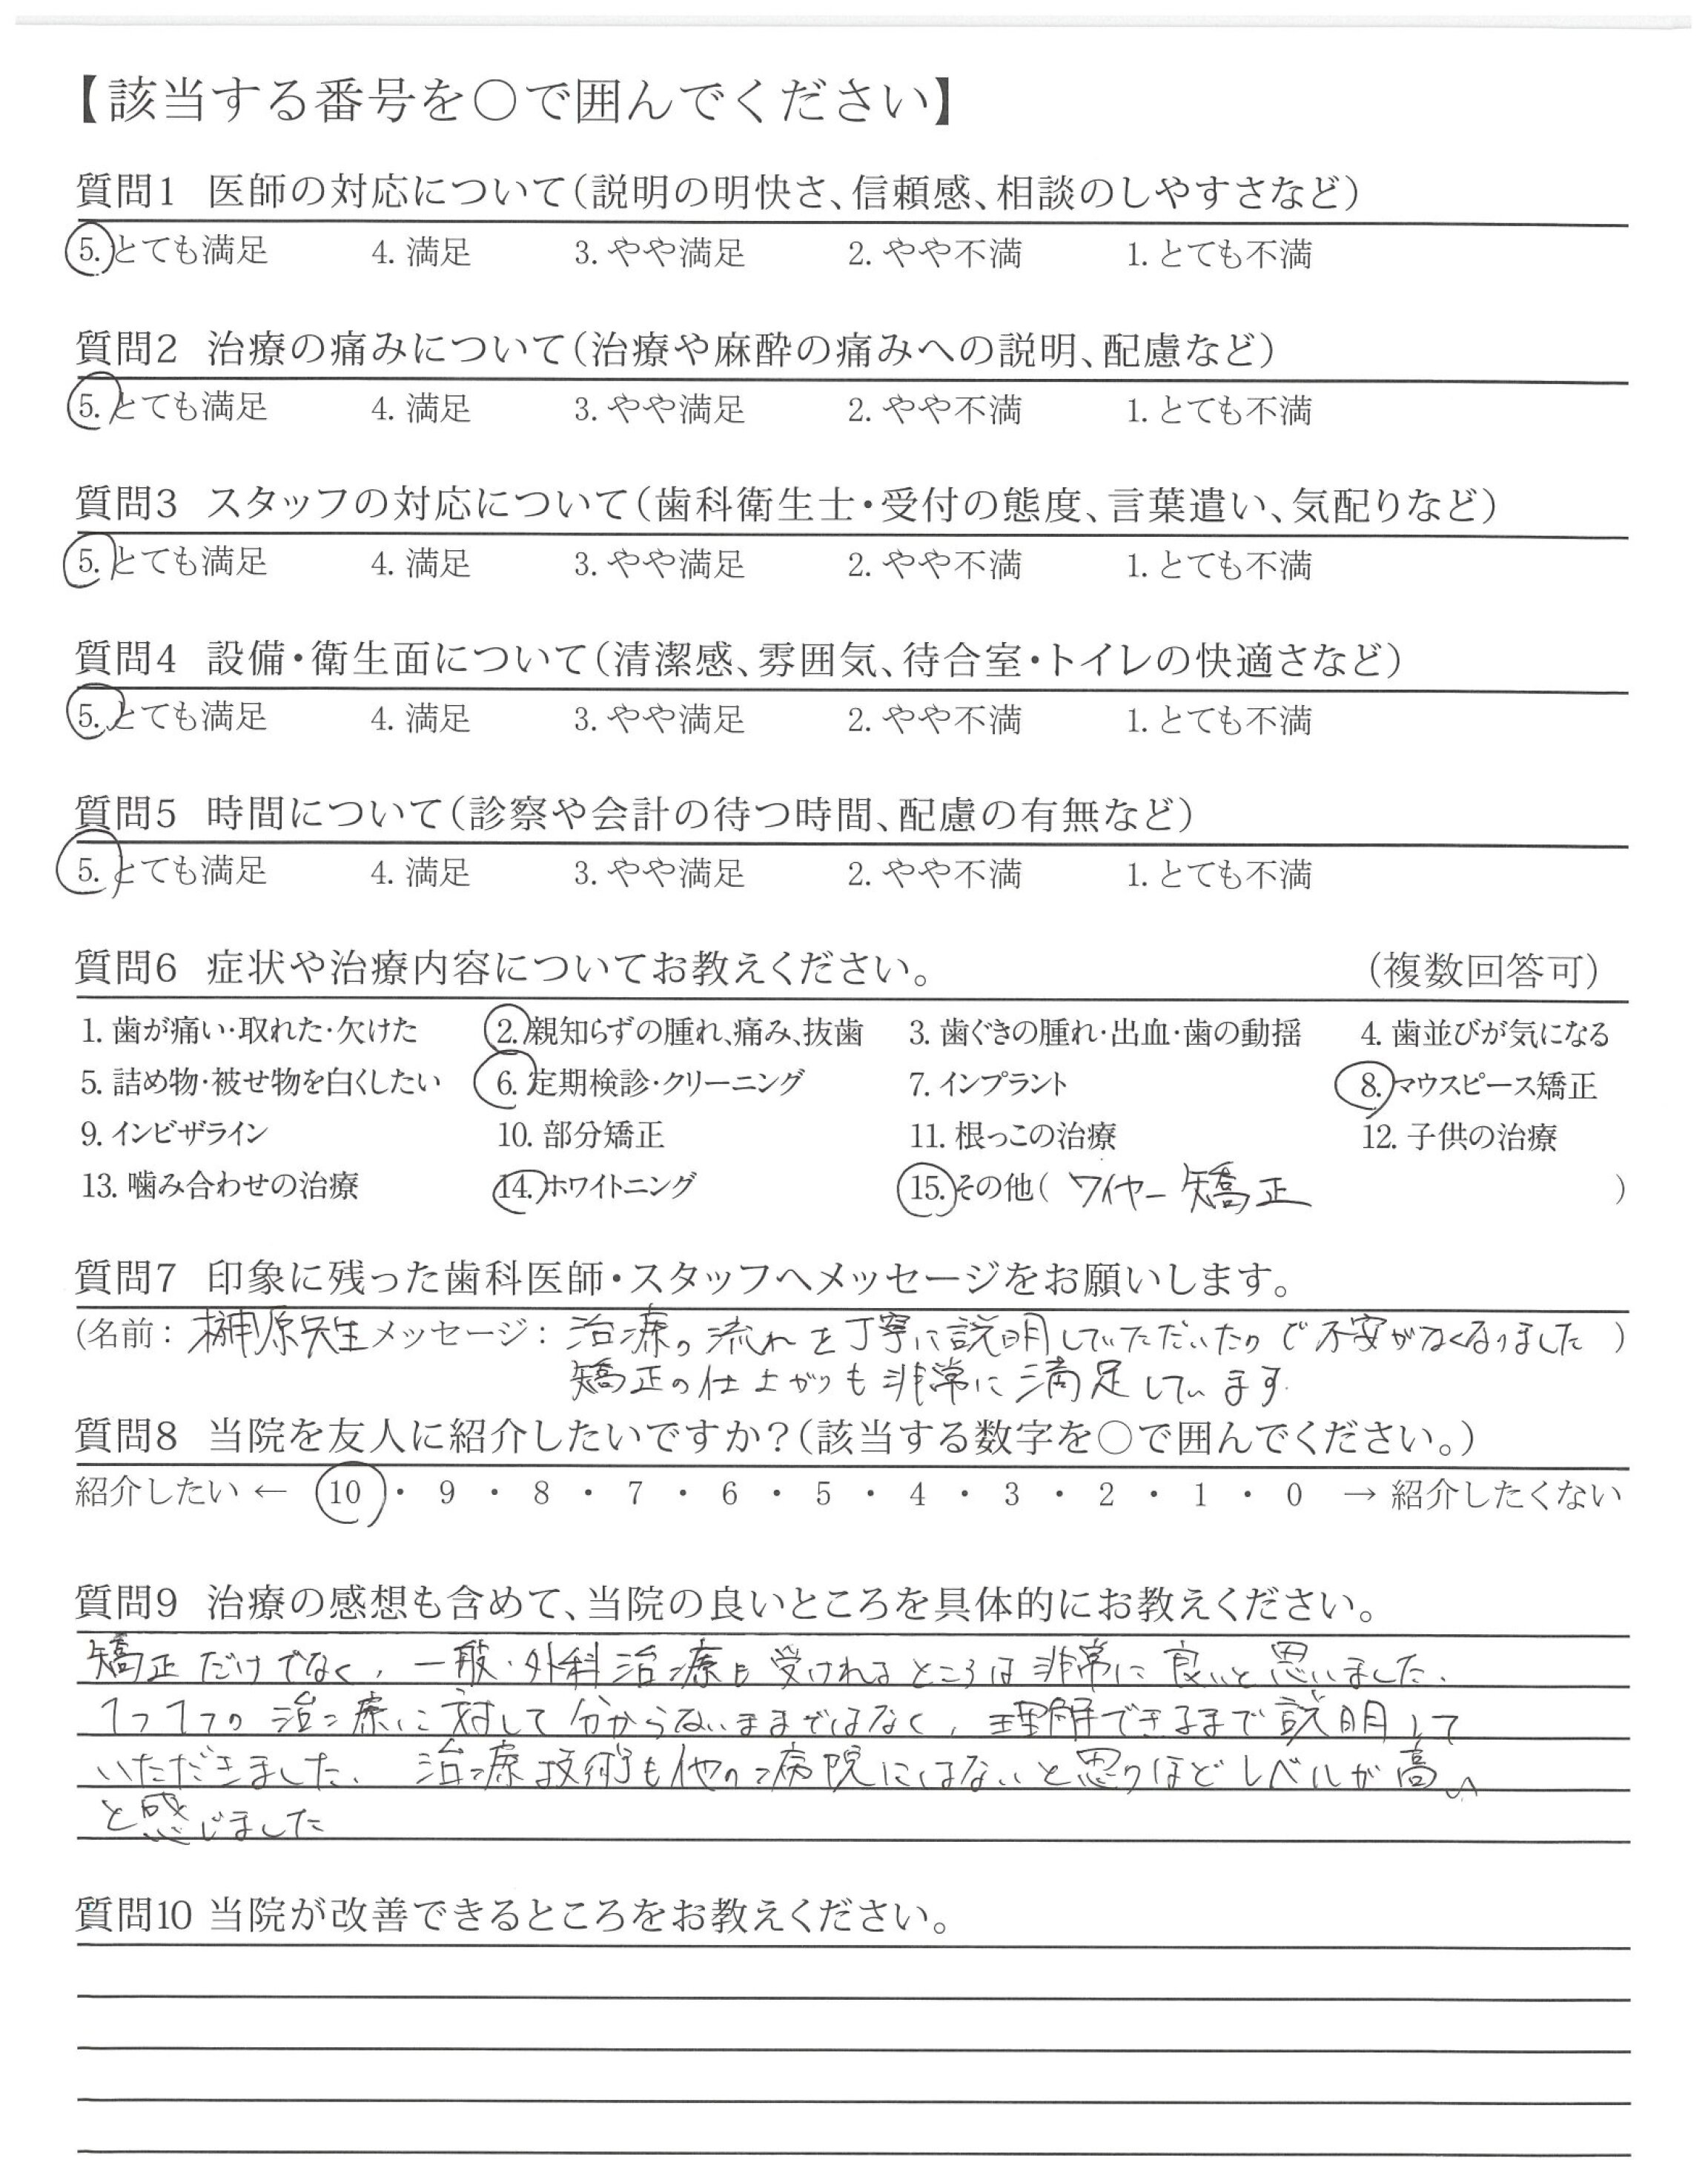 【該当する番号を○で囲んでください】
質問1 医師の対応について（説明の明快さ、信頼感、相談のしやすさなど）
5. とても満足 4. 満足 3. やや満足 2. やや不満 1. とても不満
質問2 治療の痛みについて（治療や麻酔の痛みへの説明、配慮など）
5. とても満足 4. 満足 3. やや満足 2. やや不満 1. とても不満
質問3 スタッフの対応について（歯科衛生士・受付の態度、言葉遣い、気配りなど）
5. とても満足 4. 満足 3. やや満足 2. やや不満 1. とても不満
質問4 設備・衛生面について（清潔感、雰囲気、待合室・トイレの快適さなど）
5. とても満足 4. 満足 3. やや満足 2. やや不満 1. とても不満
質問5 時間について（診察や会計の待つ時間、配慮の有無など）
5. とても満足 4. 満足 3. やや満足 2. やや不満 1. とても不満
質問6 症状や治療内容についてお教えください。 （複数回答可）
1. 歯が痛い・取れた・欠けた 2. 親知らずの腫れ、痛み、抜歯 3. 歯ぐきの腫れ・出血・歯の動揺 4. 歯並びが気になる
5. 詰め物・被せ物を白くしたい 6. 定期検診・クリーニング 7. インプラント 8. マウスピース矯正
9. インビザライン 10. 部分矯正 11. 根っこの治療 12. 子供の治療
13. 噛み合わせの治療 14. ホワイトニング 15. その他（ ワイヤー矯正 ）
質問7 印象に残った歯科医師・スタッフへメッセージをお願いします。
（名前： 榊原先生 メッセージ： 治療の流れを丁寧に説明していただいたので不安がなくなりました ）
矯正の仕上がりも非常に満足しています
質問8 当院を友人に紹介したいですか？（該当する数字を○で囲んでください。）
紹介したい ← 10 ・ 9 ・ 8 ・ 7 ・ 6 ・ 5 ・ 4 ・ 3 ・ 2 ・ 1 ・ 0 → 紹介したくない
質問9 治療の感想も含めて、当院の良いところを具体的にお教えください。
矯正だけでなく、一般・外科治療も受けれるところは非常に良いと思いました。
1つ1つの治療に対して分からないままではなく、理解できるまで説明して
いただきました。 治療技術も他の病院にはないと思うほどレベルが高い
と感じました
質問10 当院が改善できるところをお教えください。